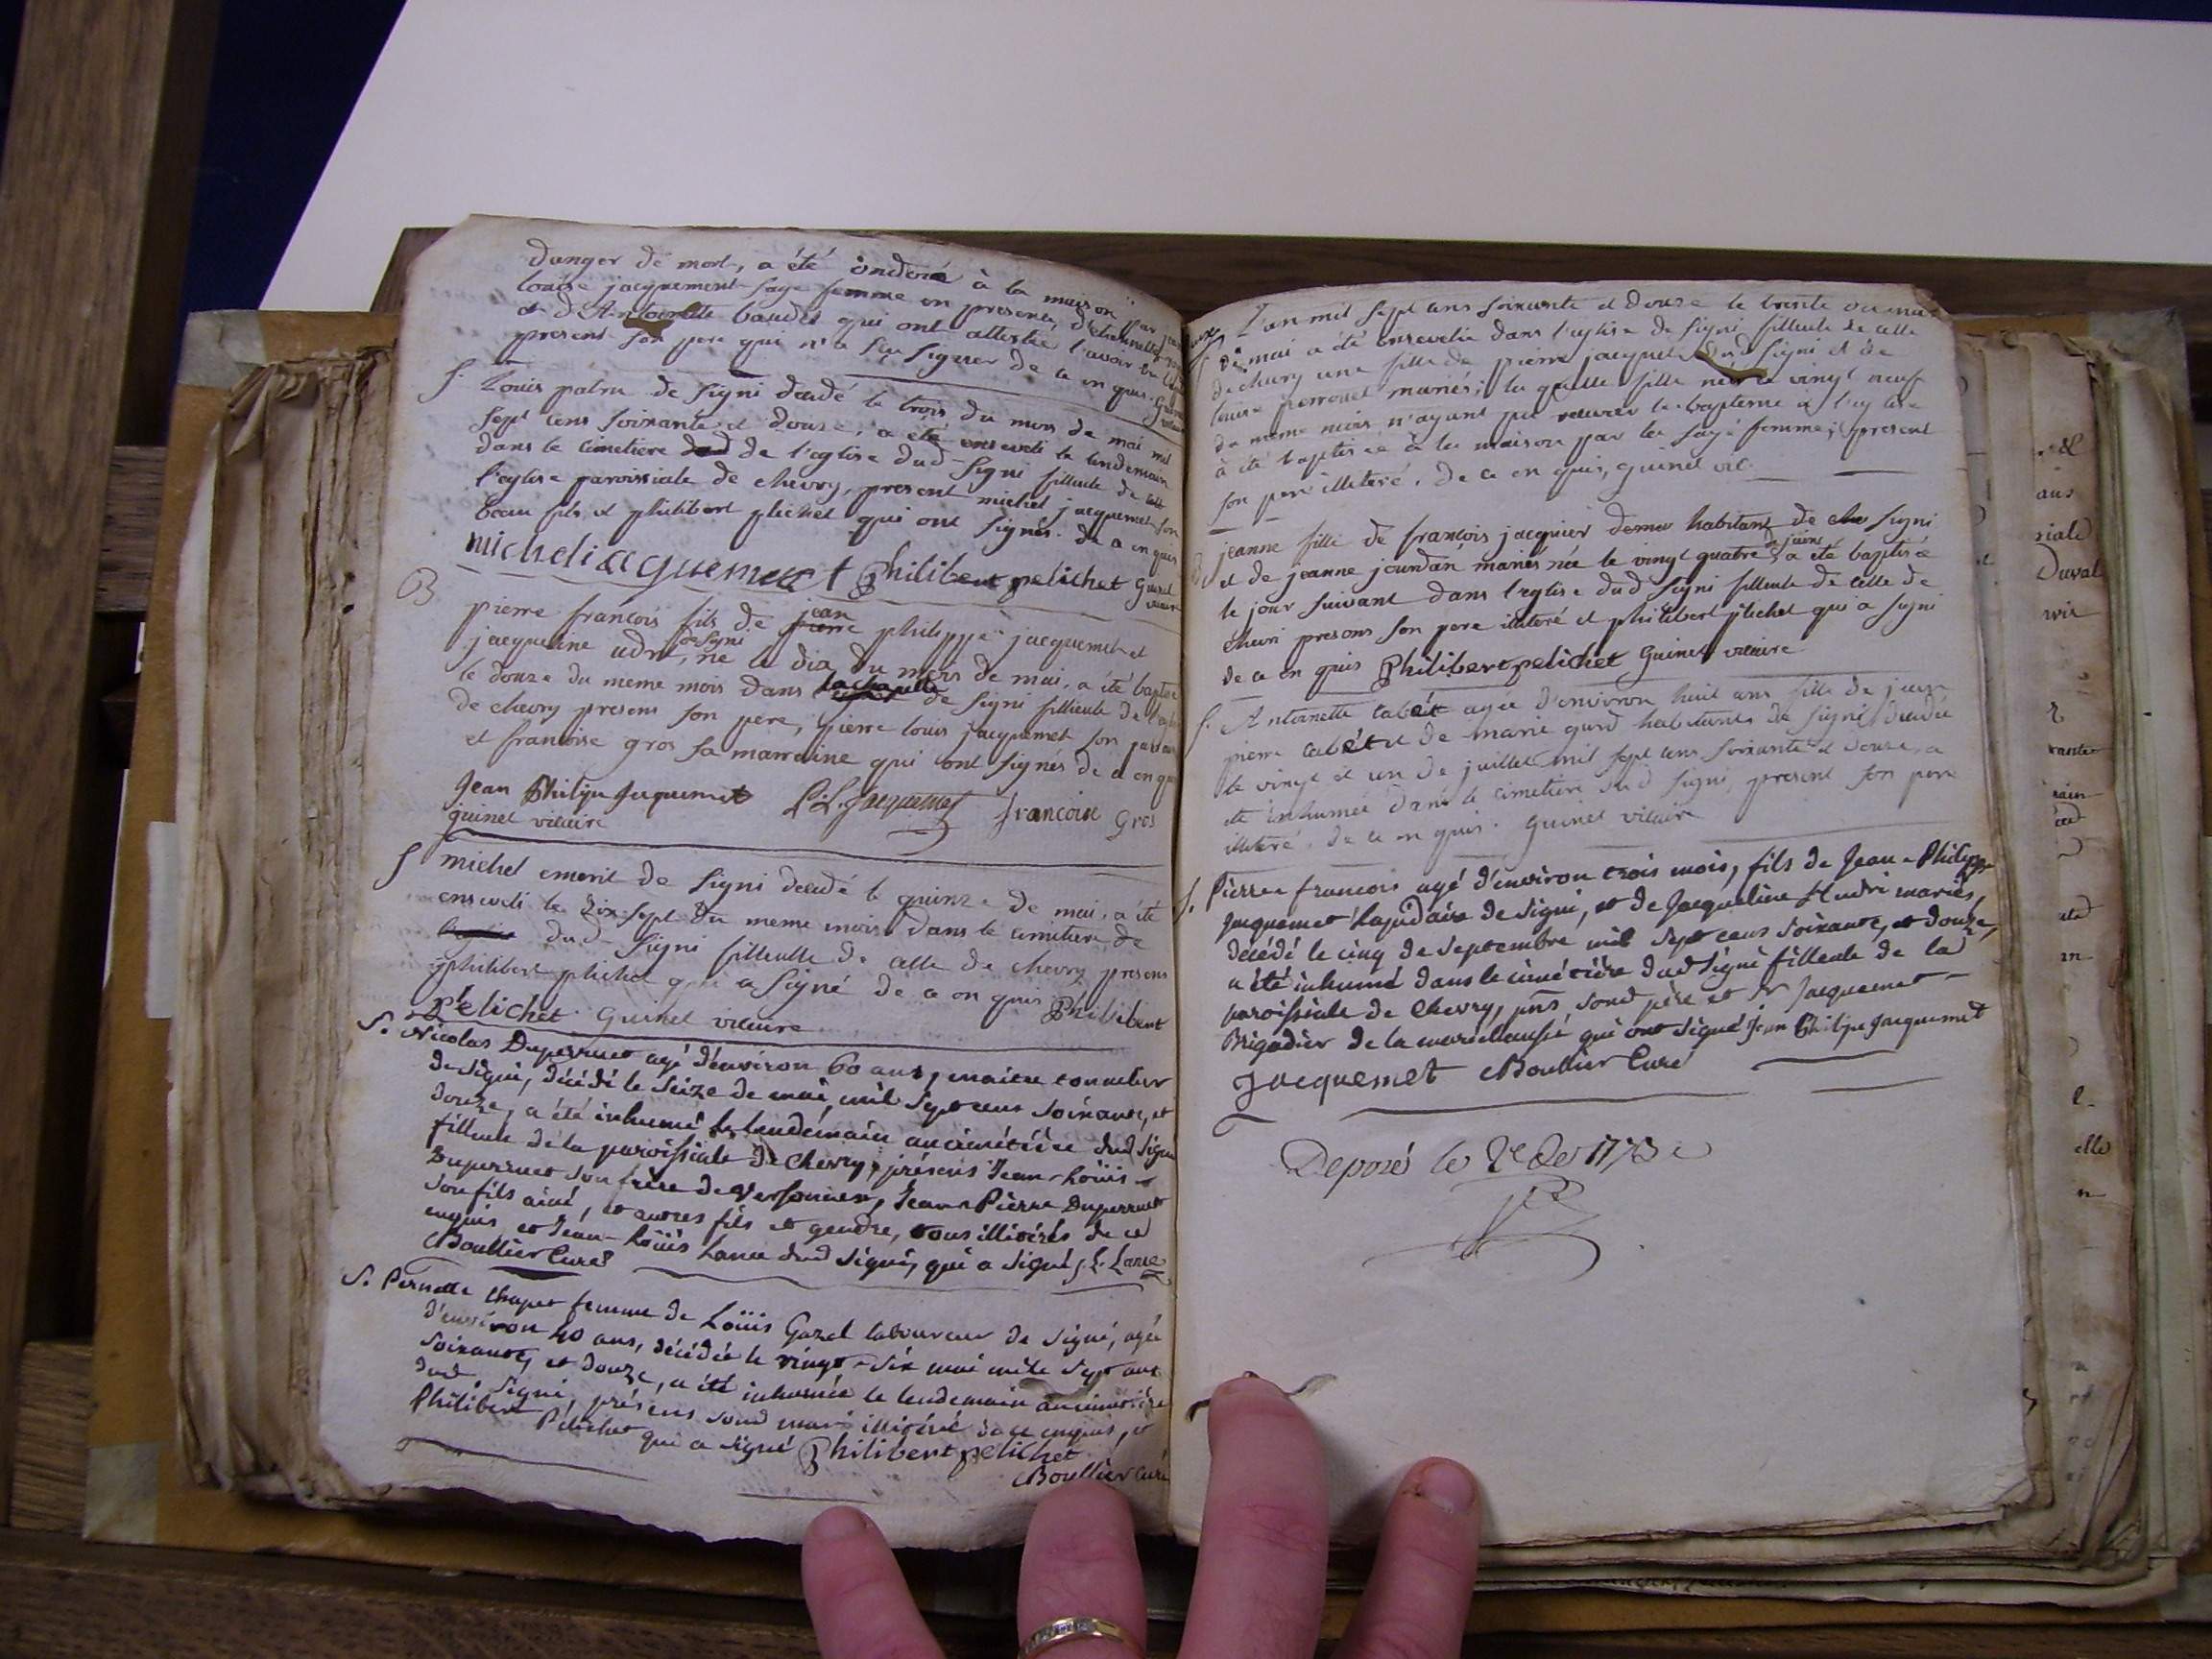 danger de mort, a été ondoié à la maison par
louise jacquemet sage femme en presence
et d'Antoinette baudet qui ont attestée l'avoir
present son pere qui n'a sçu signer de ce enquis. Guinet
S. Louis patru de signi decedé le trois du mois de mai mil
sept cens soixante et douze, a été enseveli le lendemain
dans le cimetiere de l'eglise dud signi filleule de
l'eglise paroissiale de chevry, present michel jacquemet son
beau fils et philibert plichet qui ont signés. de ce enquis
michel iacquemet Philibert pelichet Guinet
vicaire
B pierre françois fils de jean philippe jacquemet et
jacqueline udri, de signi né le dix du mois de mai, a été baptisé
le douze du meme mois dans la chapelle de signi fillieule de
de chevry presens son pere, pierre louis jacquemet son parrain
et françoise gros sa marraine qui ont signés de ce enquis
Jean Philipe Jaquemet P. L. Jacquemet francoise Gros
guinet vicaire
S michel emerit de signi decedé le quinze de mai, a été
enseveli le dix sept du meme mois dans le cimetiere de
dud signi filleulle de celle de chevry presens
philibert plichet qui a signé de ce enquis Philibert
pelichet Guinet vicaire
S. Nicolas Duperruet agé d'environ 60 ans, maitre tonnelier
de Signi, décédé le seize de mai, mil sept cens soixante, et
douze, a été inhumé le lendemain au cimétière dud Signi
filleule de la paroissiale de Chevry, présens Jean-Loüis
Duperruet son frère de Versonnex, Jean-Pierre Duperruet
son fils ainé, et autres fils et gendre, tous illitérés de ce
enquis, et Jean-Loüis Lance dud Signi, qui a signé J. L. Lance
Boullier Curé
S. Pernette Chapet femme de Loüis Gazel laboureur de Signi, agée
d'environ 40 ans, décédée le vingt-six mai mile sept cens
soixante, et douze, a été inhumée le lendemain au cimetière
dud Signi, présens soud mari illitéré de ce enquis, et
Philibert Pelichet qui a signé Philibert pelichet
Boullier Curé
L'an mil sept cens soixante et douze le trente
de mai a été ensevelie dans l'eglise de signi, filleule de celle
de chevry une fille de pierre jacquet dud signi et de
louise perronet mariés; la quelle fille née le vingt neuf
du meme mois n'ayant pu recevoir le bapteme a l'eglise
à été baptisée à la maison par la sage femme; present
son pere illiteré. de ce enquis, guinet vic.
B jeanne fille de françois jacquier habitant de signi
et de jeanne jourdan mariés née le vingt quatre de juin, a été baptisée
le jour suivant dans l'eglise dud signi filleule de celle de
chevri presens son pere illiteré et philibert plichet qui a signé
de ce enquis Philibert pelichet Guinet vicaire
S. Antoinette cabét agée d'environ huit ans fille de jean
pierre cabét et de marie habitants de signi, decedée
le vingt et un de juillet mil sept cens soixante et douze, a
été inhumée dans le cimetiere dud signi, present son pere
illiteré. de ce enquis. Guinet vicaire
S. Pierre françois agé d'environ trois mois, fils de Jean-Philippe
Jacquemet lapidaire de Signi, et de Jacqueline Hudri mariés,
décédé le cinq de Septembre mil sept cens soixante, et douze,
a été inhumé dans le cimétière dud Signi filleule de la
paroissiale de Chevry, pns, soud père et Sr Jacquemet
Brigadier de la marechaussée qui ont signé Jean Philipe Jaquemet
Jacquemet Boullier Curé
Deposé le 1773